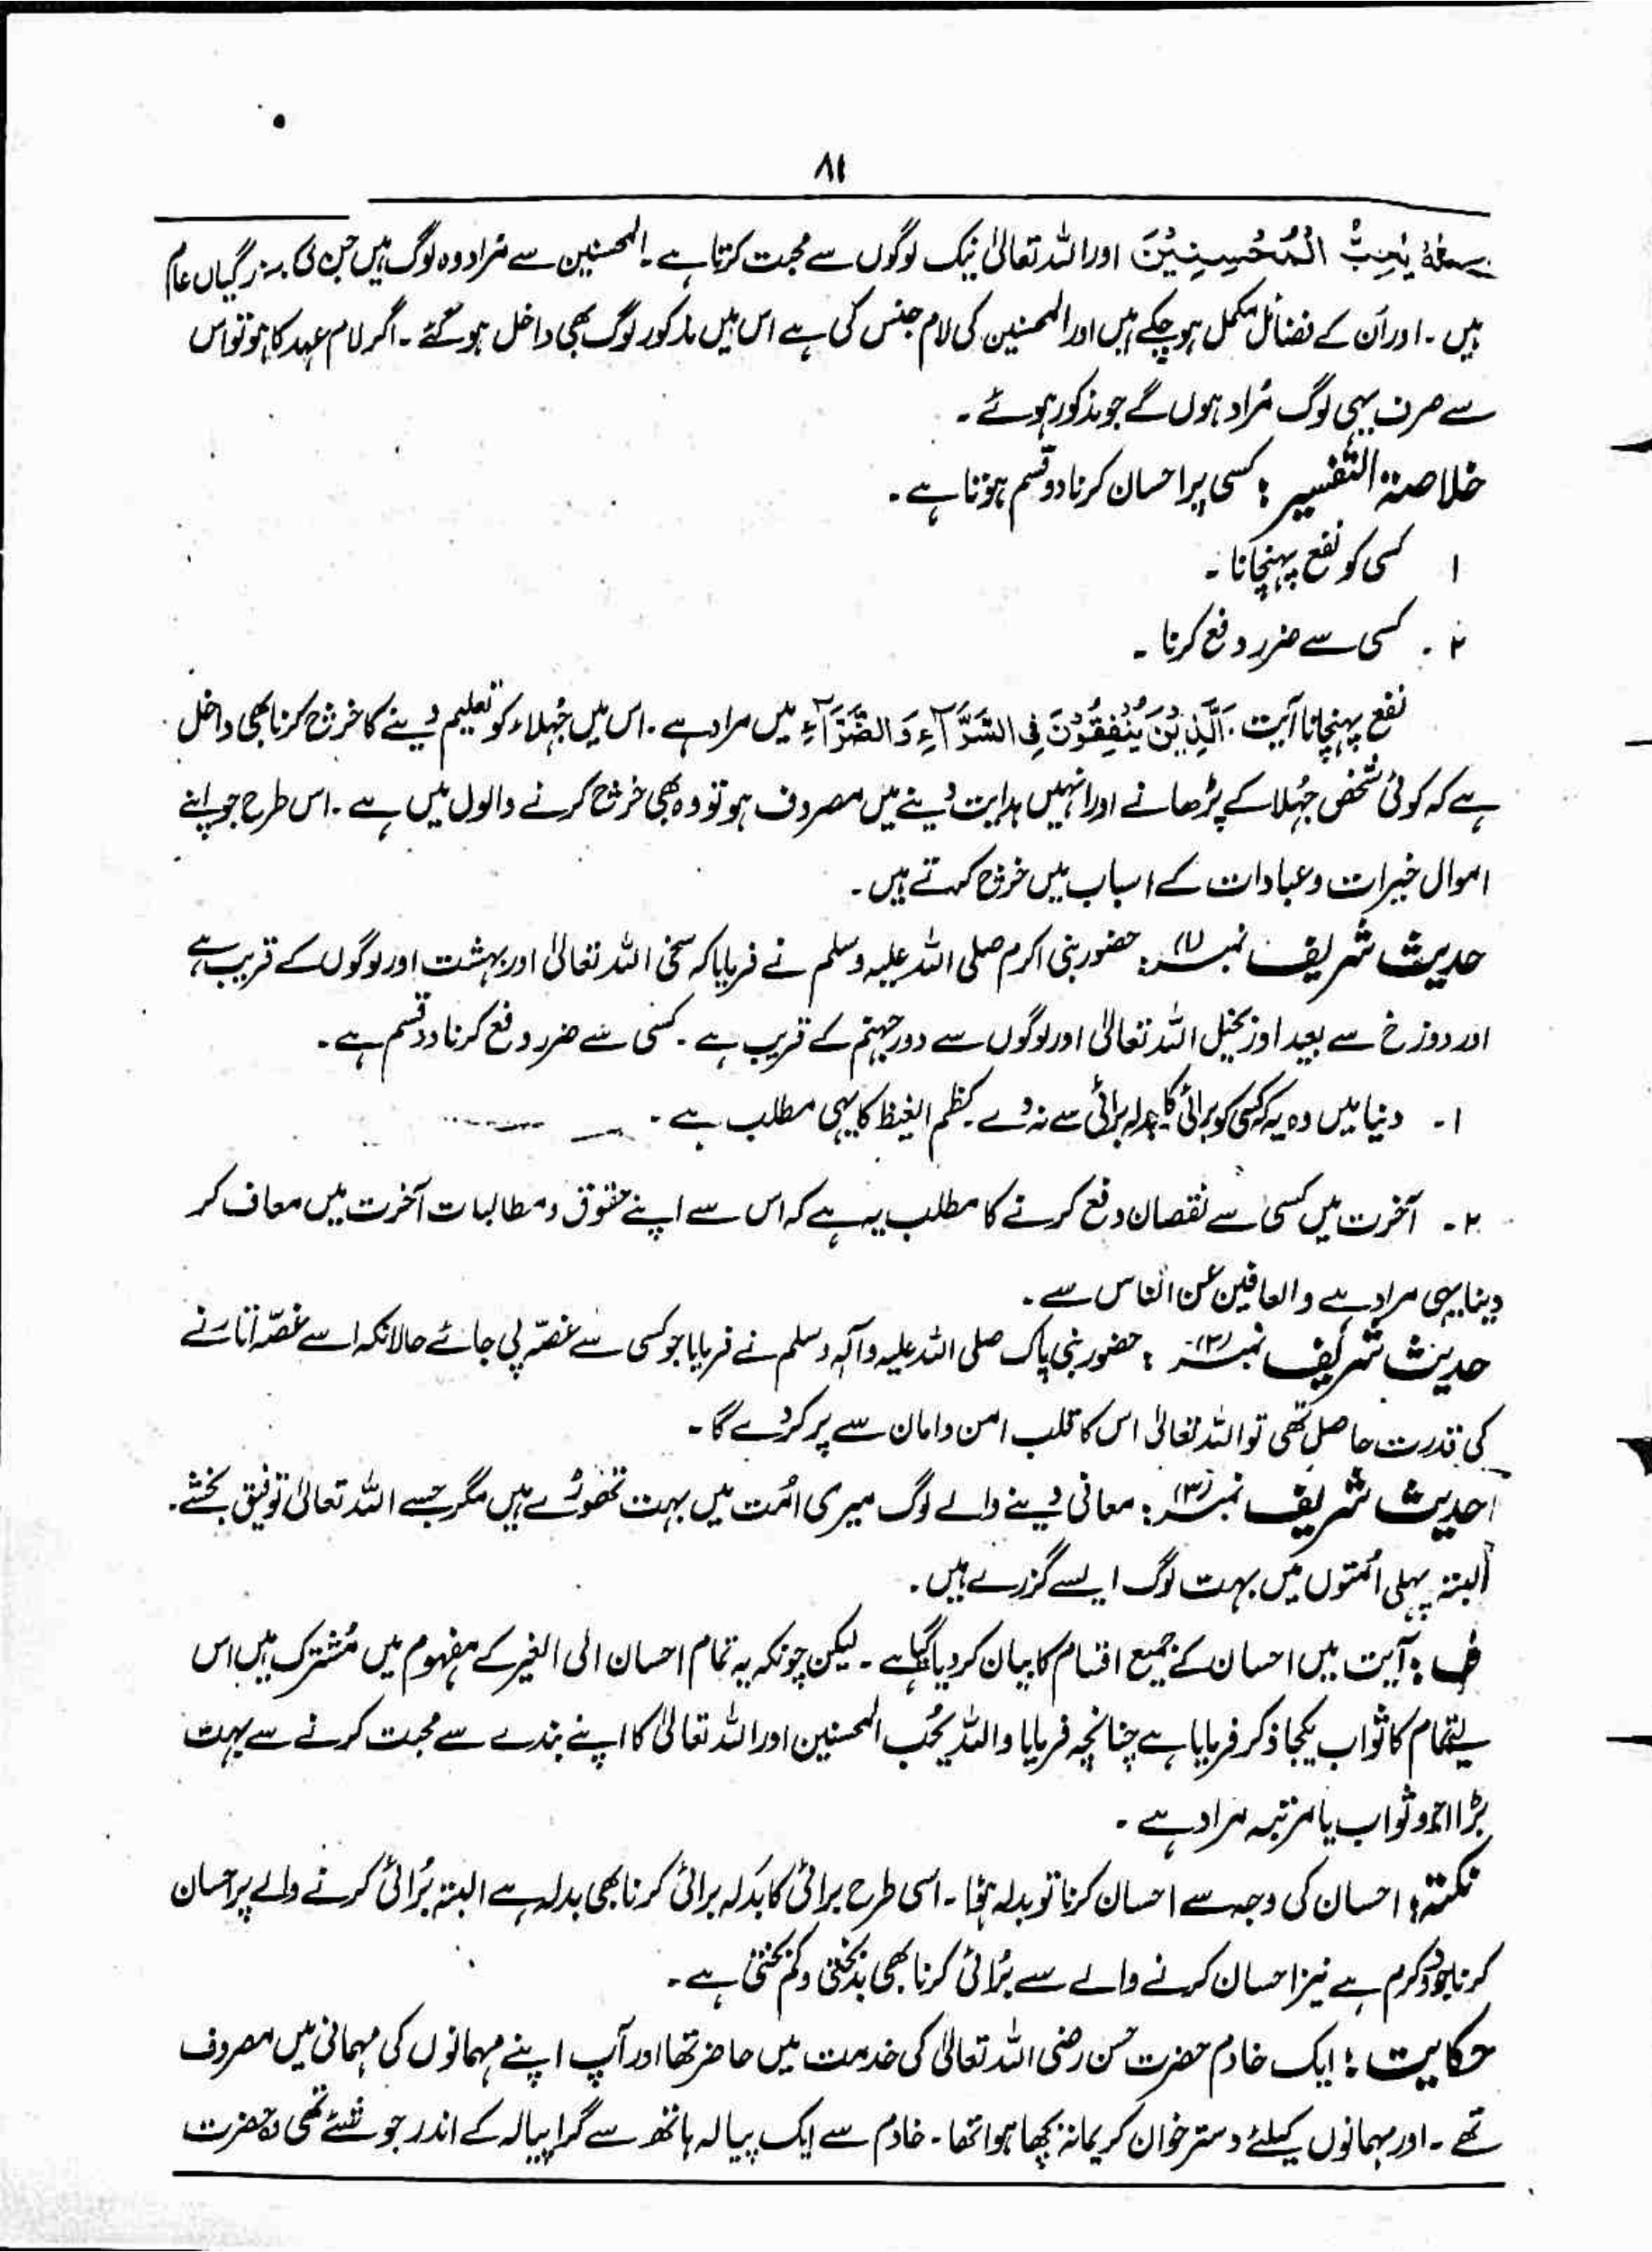 ۸۱
یُحِبُّ الْمُحْسِنِیْنَ اور اللہ تعالیٰ نیک لوگوں سے محبت کرتا ہے۔ المحسنین سے مُراد وہ لوگ ہیں جن کی بزرگیاں عام
ہیں۔ اور اُن کے فضائل مکمل ہو چکے ہیں اور المحسنین کی لام جنس کی ہے اس میں مذکور لوگ بھی داخل ہو گئے۔ اگر لام عہد کا ہو تو اس
سے صرف یہی لوگ مُراد ہوں گے جو مذکور ہوئے۔
خلاصۃ التفسیر : کسی پر احسان کرنا دو قسم ہوتا ہے۔
۱ کسی کو نفع پہنچانا۔
۲۔ کسی سے ضرر دفع کرنا۔
نفع پہنچانا آیت۔ اَلَّذِیْنَ یُنْفِقُوْنَ فِی السَّرَّآءِ وَالضَّرَّآءِ میں مراد ہے۔ اس میں جُہلاء کو تعلیم دینے کا خرچ کرنا بھی داخل
ہے کہ کوئی شخص جُہلا کے پڑھانے اور انہیں ہدایت دینے میں مصروف ہو تو وہ بھی خرچ کرنے والوں میں ہے۔ اس طرح جو اپنے
اموال خیرات و عبادات کے اسباب میں خرچ کرتے ہیں۔
حدیث شریف نمبر (۱): حضور نبی اکرم صلی اللہ علیہ وسلم نے فرمایا کہ سخی اللہ تعالیٰ اور بہشت اور لوگوں کے قریب ہے
اور دوزخ سے بعید اور بخیل اللہ تعالیٰ اور لوگوں سے دور جہنم کے قریب ہے۔ کسی سے ضرر دفع کرنا دو قسم ہے۔
۱۔ دنیا میں وہ یہ کہ کسی کو برائی کا بدلہ برائی سے نہ دے۔ کظم الغیظ کا یہی مطلب ہے۔
۲۔ آخرت میں کسی سے نقصان دفع کرنے کا مطلب یہ ہے کہ اس سے اپنے حقوق و مطالبات آخرت میں معاف کر
دینا یہی مراد ہے والعافین عن الناس سے۔
حدیث شریف نمبر (۲) : حضور نبی پاک صلی اللہ علیہ وآلہ وسلم نے فرمایا جو کسی سے غصّہ پی جائے حالانکہ اسے غصّہ اتارنے
کی قدرت حاصل تھی تو اللہ تعالیٰ اس کا قلب امن و امان سے پر کر دے گا۔
حدیث شریف نمبر (۳): معافی دینے والے لوگ میری اُمت میں بہت تھوڑے ہیں مگر جسے اللہ تعالیٰ توفیق بخشے۔
البتہ پہلی اُمتوں میں بہت لوگ ایسے گزرے ہیں۔
ف : آیت میں احسان کے جمیع اقسام کا بیان کر دیا گیا ہے۔ لیکن چونکہ یہ تمام احسان الی الغیر کے مفہوم میں مُشترک ہیں اس
لیے تمام کا ثواب یکجا ذکر فرمایا ہے چنانچہ فرمایا واللہ یُحب المحسنین اور اللہ تعالیٰ کا اپنے بندے سے محبت کرنے سے بہت
بڑا اجر و ثواب یا مرتبہ مراد ہے۔
نکتہ : احسان کی وجہ سے احسان کرنا تو بدلہ ہوا۔ اسی طرح برائی کا بدلہ برائی کرنا بھی بدلہ ہے البتہ بُرائی کرنے والے پر احسان
کرنا جود و کرم ہے نیز احسان کرنے والے سے بُرائی کرنا بھی بدبختی و کم بختی ہے۔
حکایت : ایک خادم حضرت حسن رضی اللہ تعالیٰ کی خدمت میں حاضر تھا اور آپ اپنے مہمانوں کی مہمانی میں مصروف
تھے۔ اور مہمانوں کیلئے دستر خوان کریمانہ بچھا ہوا تھا۔ خادم سے ایک پیالہ ہاتھ سے گرا پیالہ کے اندر جو شئے تھی وہ حضرت